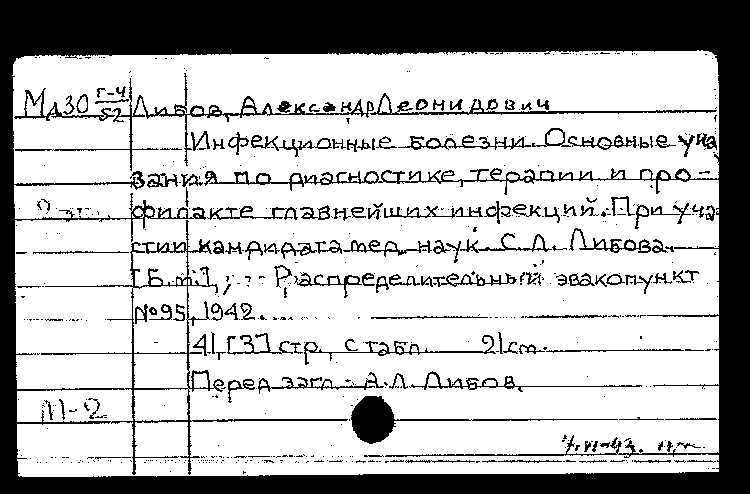 Мд30 Г-4/52 Либов, Александр Леонидович
Инфекционные болезни. Основные ука
зания по диагностике, терапии и про-
2 эт. филакте главнейших инфекций. При уча
стии кандидата мед. наук С.Л. Либова.
[Б.м.], Распределительный эвакопункт
№95, 1942.
41, [3] стр., с табл. 21 cm.
Перед загл.: А.Л. Либов.
М-2